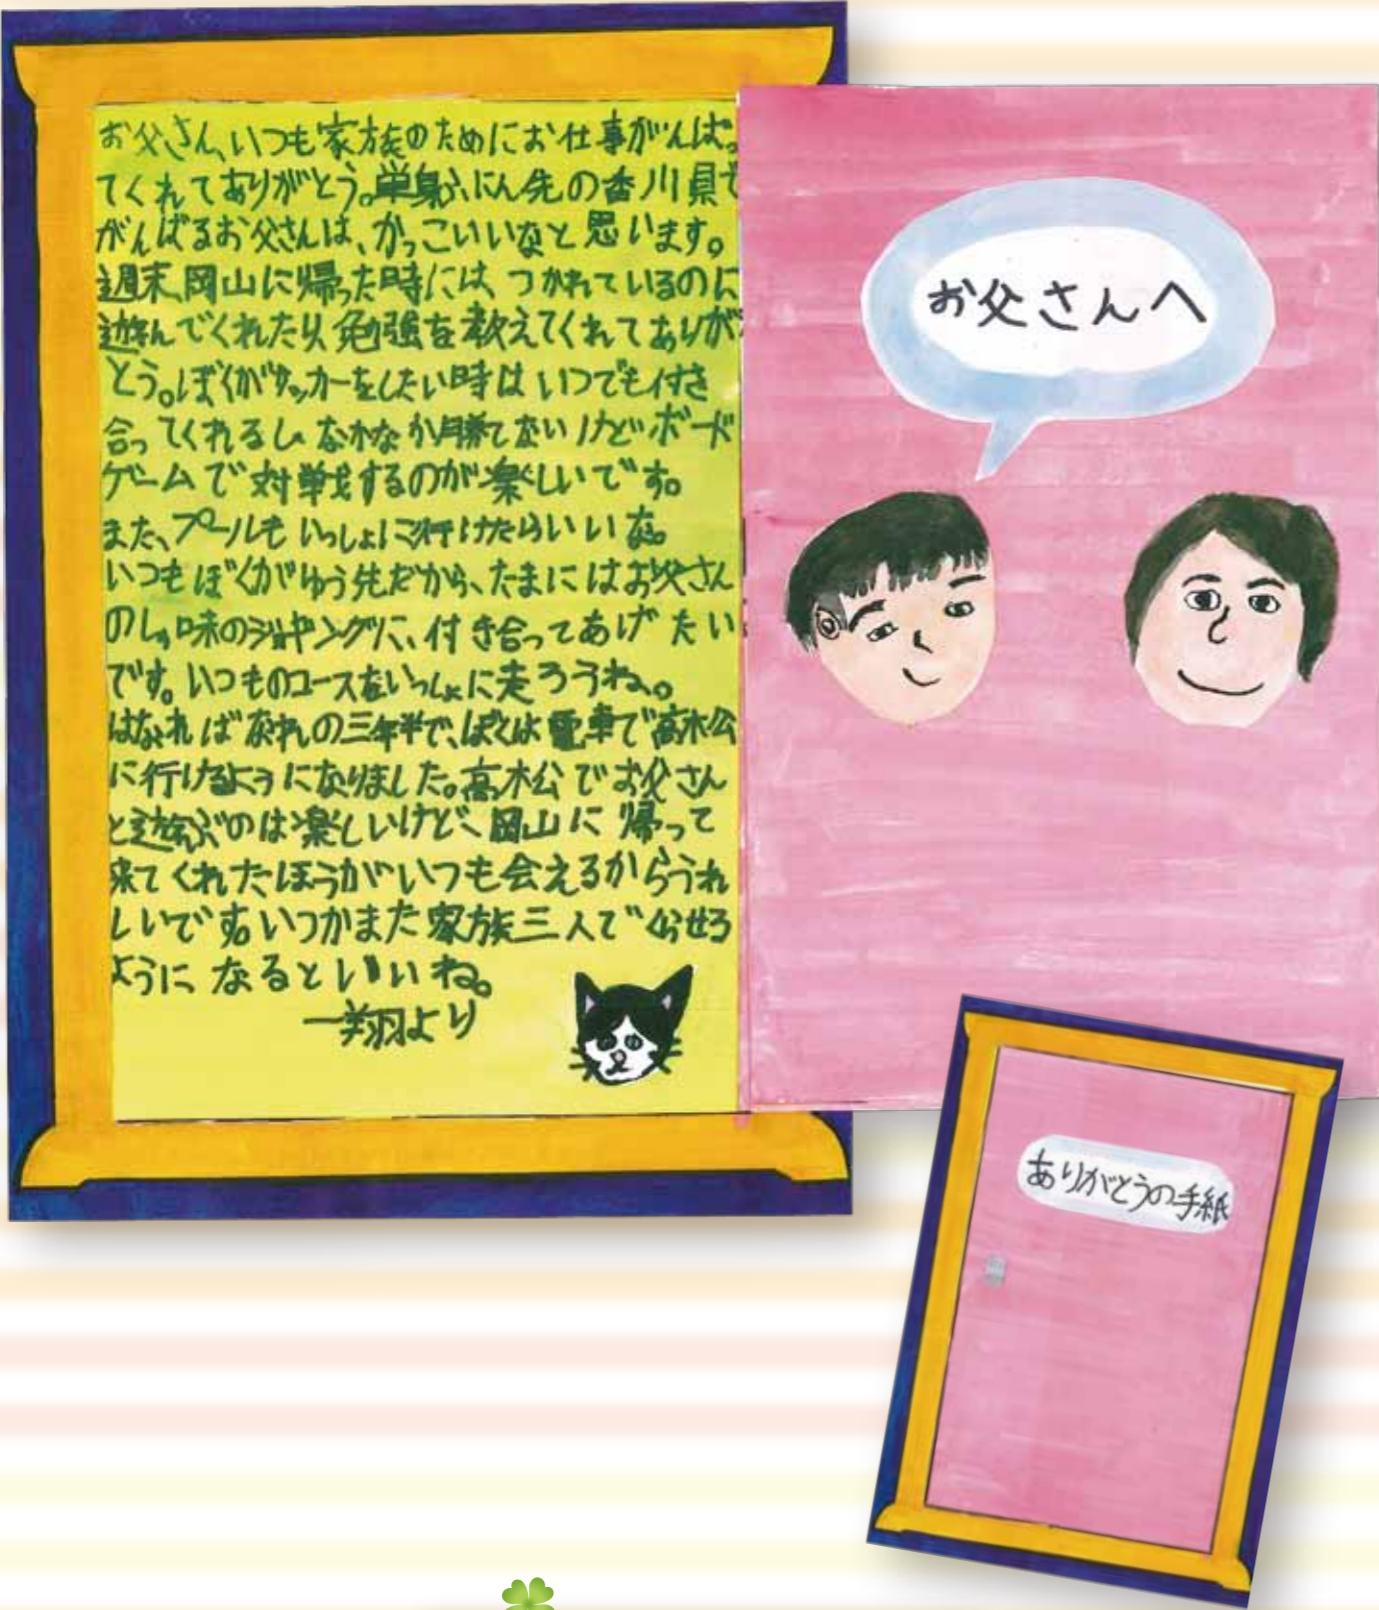 お父さん、いつも家族のためにお仕事がんばっ
てくれてありがとう。単身ふにん先の香川県で
がんばるお父さんは、かっこいいなと思います。
週末、岡山に帰った時には、つかれているのに
遊んでくれたり、勉強を教えてくれてありが
とう。ぼくがサッカーをしたい時はいつでも付き
合ってくれるし、なかなか勝てないけどボード
ゲームで対戦するのが楽しいです。
また、プールもいっしょに行けたらいいな。
いつもぼくがゆう先だから、たまにはお父さん
のしゅ味のジョギングに、付き合ってあげたい
です。いつものコースをいっしょに走ろうね。
はなればなれの三年半で、ぼくは電車で高松
に行けるようになりました。高松でお父さん
と遊ぶのは楽しいけど、岡山に帰って
来てくれたほうがいつも会えるからうれ
しいです。いつかまた家族三人でくらせる
ようになるといいね。
一翔より
お父さんへ
ありがとうの手紙